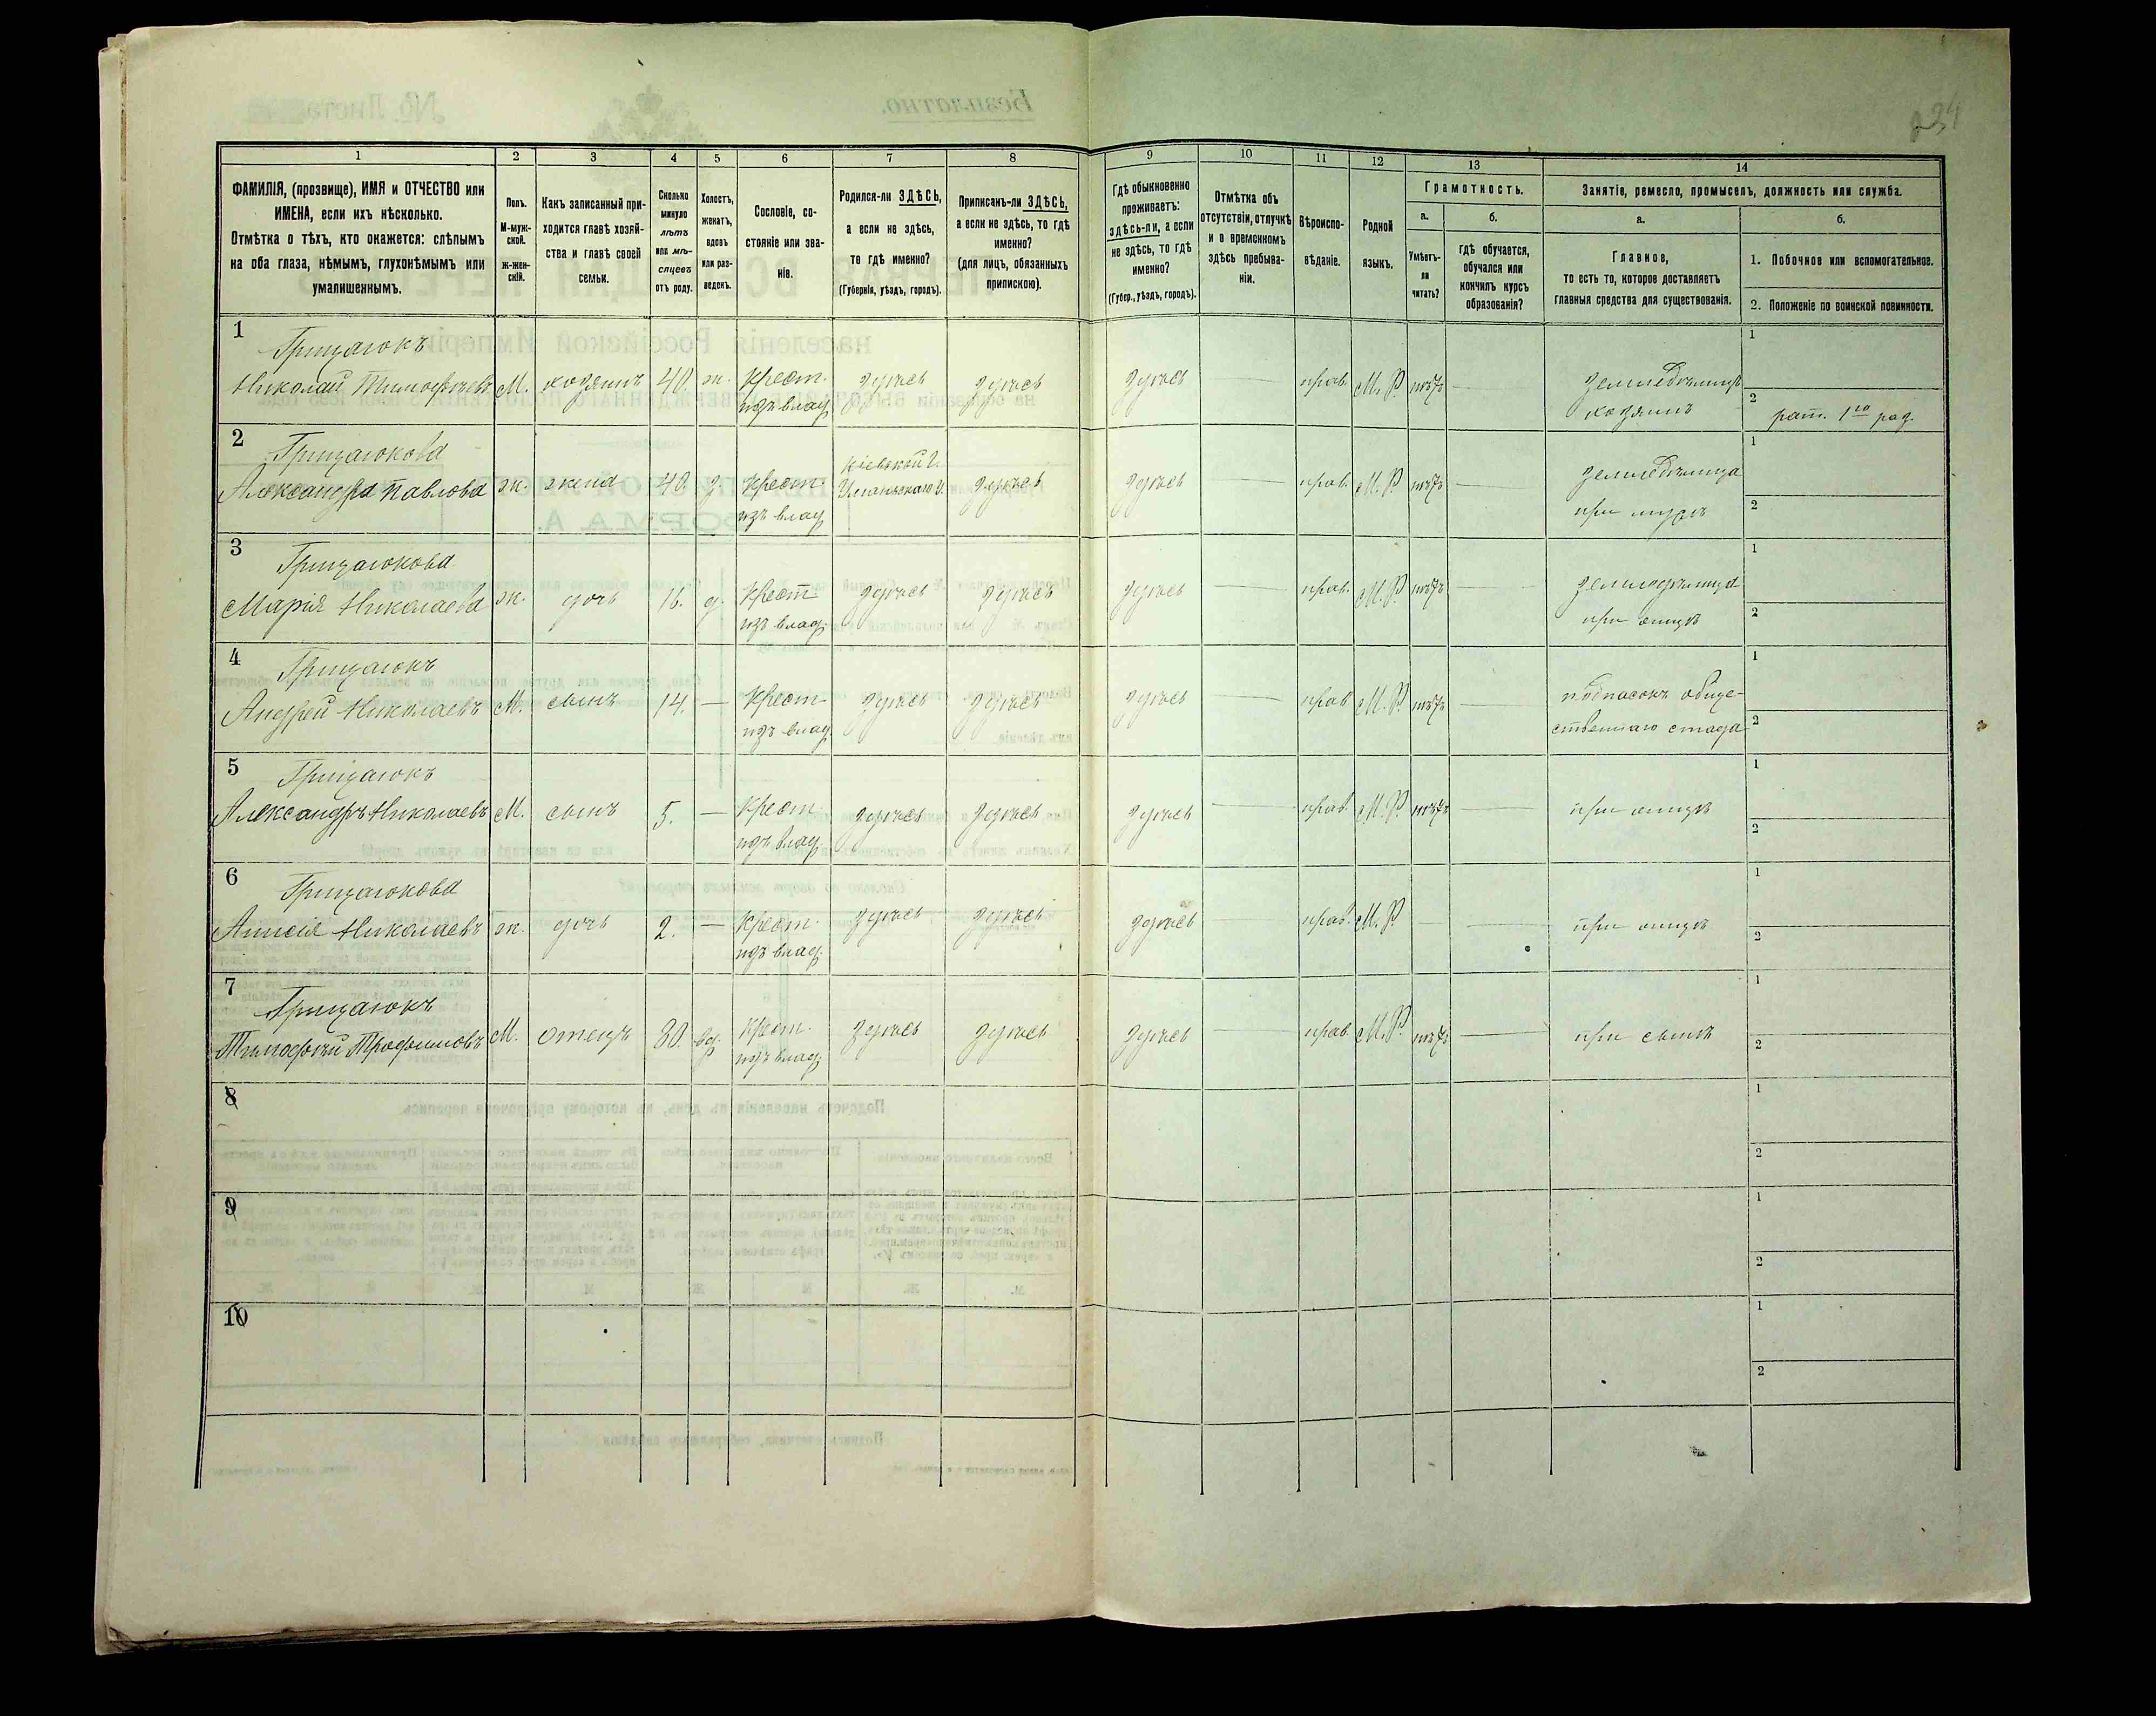 1
2
3
4
5
6
7
8
ФАМИЛІЯ, (прозвище), ИМЯ и ОТЧЕСТВО или
ИМЕНА, если ихъ нѣсколько.
Отмѣтка о тѣхъ, кто окажется: слѣпымъ
на оба глаза, нѣмымъ, глухонѣмымъ или
умалишеннымъ.
Полъ.
М-муж-
ской.
Ж-жен-
скій.
Какъ записанный при-
ходится главѣ хозяй-
ства и главѣ своей
семьи.
Сколько
минуло
лѣтъ
или мѣ-
сяцевъ
отъ роду.
Холостъ,
женатъ,
вдовъ
или раз-
веденъ.
Сословіе, со-
стояніе или зва-
ніе.
Родился-ли ЗДѢСЬ,
а если не здѣсь,
то гдѣ именно?
(Губернія, уѣздъ, городъ).
Приписанъ-ли ЗДѢСЬ,
а если не здѣсь, то гдѣ
именно?
(для лицъ, обязанныхъ
припискою).
9
10
11
12
13
14
Гдѣ обыкновенно
проживаетъ:
здѣсь-ли, а если
не здѣсь, то гдѣ
именно?
(Губер., уѣздъ, городъ).
Отмѣтка объ
отсутствіи, отлучкѣ
и о временномъ
здѣсь пребыва-
ніи.
Вѣроиспо-
вѣданіе.
Родной
языкъ.
Грамотность.
а.
б.
Умѣетъ-
ли
читать?
гдѣ обучается,
обучался или
кончилъ курсъ
образованія?
Занятіе, ремесло, промыселъ, должность или служба.
а.
б.
Главное,
то есть то, которое доставляетъ
главныя средства для существованія.
1. Побочное или вспомогательное.
2. Положеніе по воинской повинности.
1
Грицаюкъ
Николай Тимофѣевъ М. хозяинъ 40. ж. Крест. здѣсь здѣсь здѣсь — прав. М. Р. нѣтъ — земледѣлецъ
изъ влад. хозяинъ
1
2 рат. 1го раз.
2
Грицаюкова
Александра Павлова ж. жена 40 з. Крест. Кіевской г.
Уманьскаго у. здѣсь здѣсь — прав. М. Р. нѣтъ — земледѣлица
изъ влад при мужѣ
1
2
3
Грицаюкова
Марія Николаева ж. дочь 16. д. Крест здѣсь здѣсь здѣсь — прав. М. Р. нѣтъ — земледѣлица
изъ влад. при отцѣ
1
2
4
Грицаюкъ
Андрей Николаевъ М. сынъ 14. — Крест здѣсь здѣсь здѣсь — прав М. Р. нѣтъ — подпасокъ обще-
изъ влад. ственнаго стада
1
2
5
Грицаюкъ
Александръ Николаевъ М. сынъ 5. — Крест. здѣсь здѣсь здѣсь — прав. М. Р. нѣтъ — при отцѣ
изъ влад.
1
2
6
Грицаюкова
Анисія Николаевъ ж. дочь 2. — Крест. здѣсь здѣсь здѣсь — прав. М. Р. — — при отцѣ
изъ влад.
1
2
7
Грицаюкъ
Тимофѣй Трофимовъ М. отецъ 80. вд. Крест. здѣсь здѣсь здѣсь — прав М. Р. нѣтъ — при сынѣ
изъ влад.
1
2
8
1
2
9
1
2
10
1
2